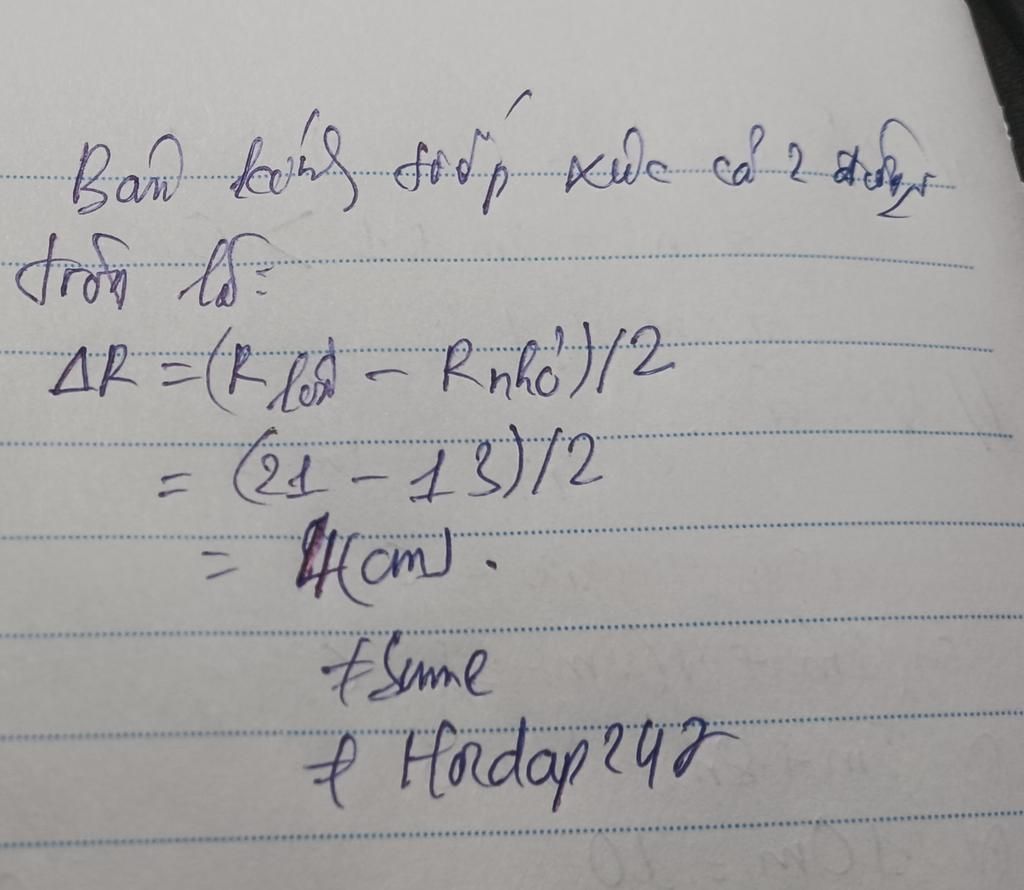 Bán kính tiếp xúc cả 2 đường
tròn là:
ΔR = (R lớn - R nhỏ)/2
= (21 - 13)/2
= 4(cm).
Hoidap247